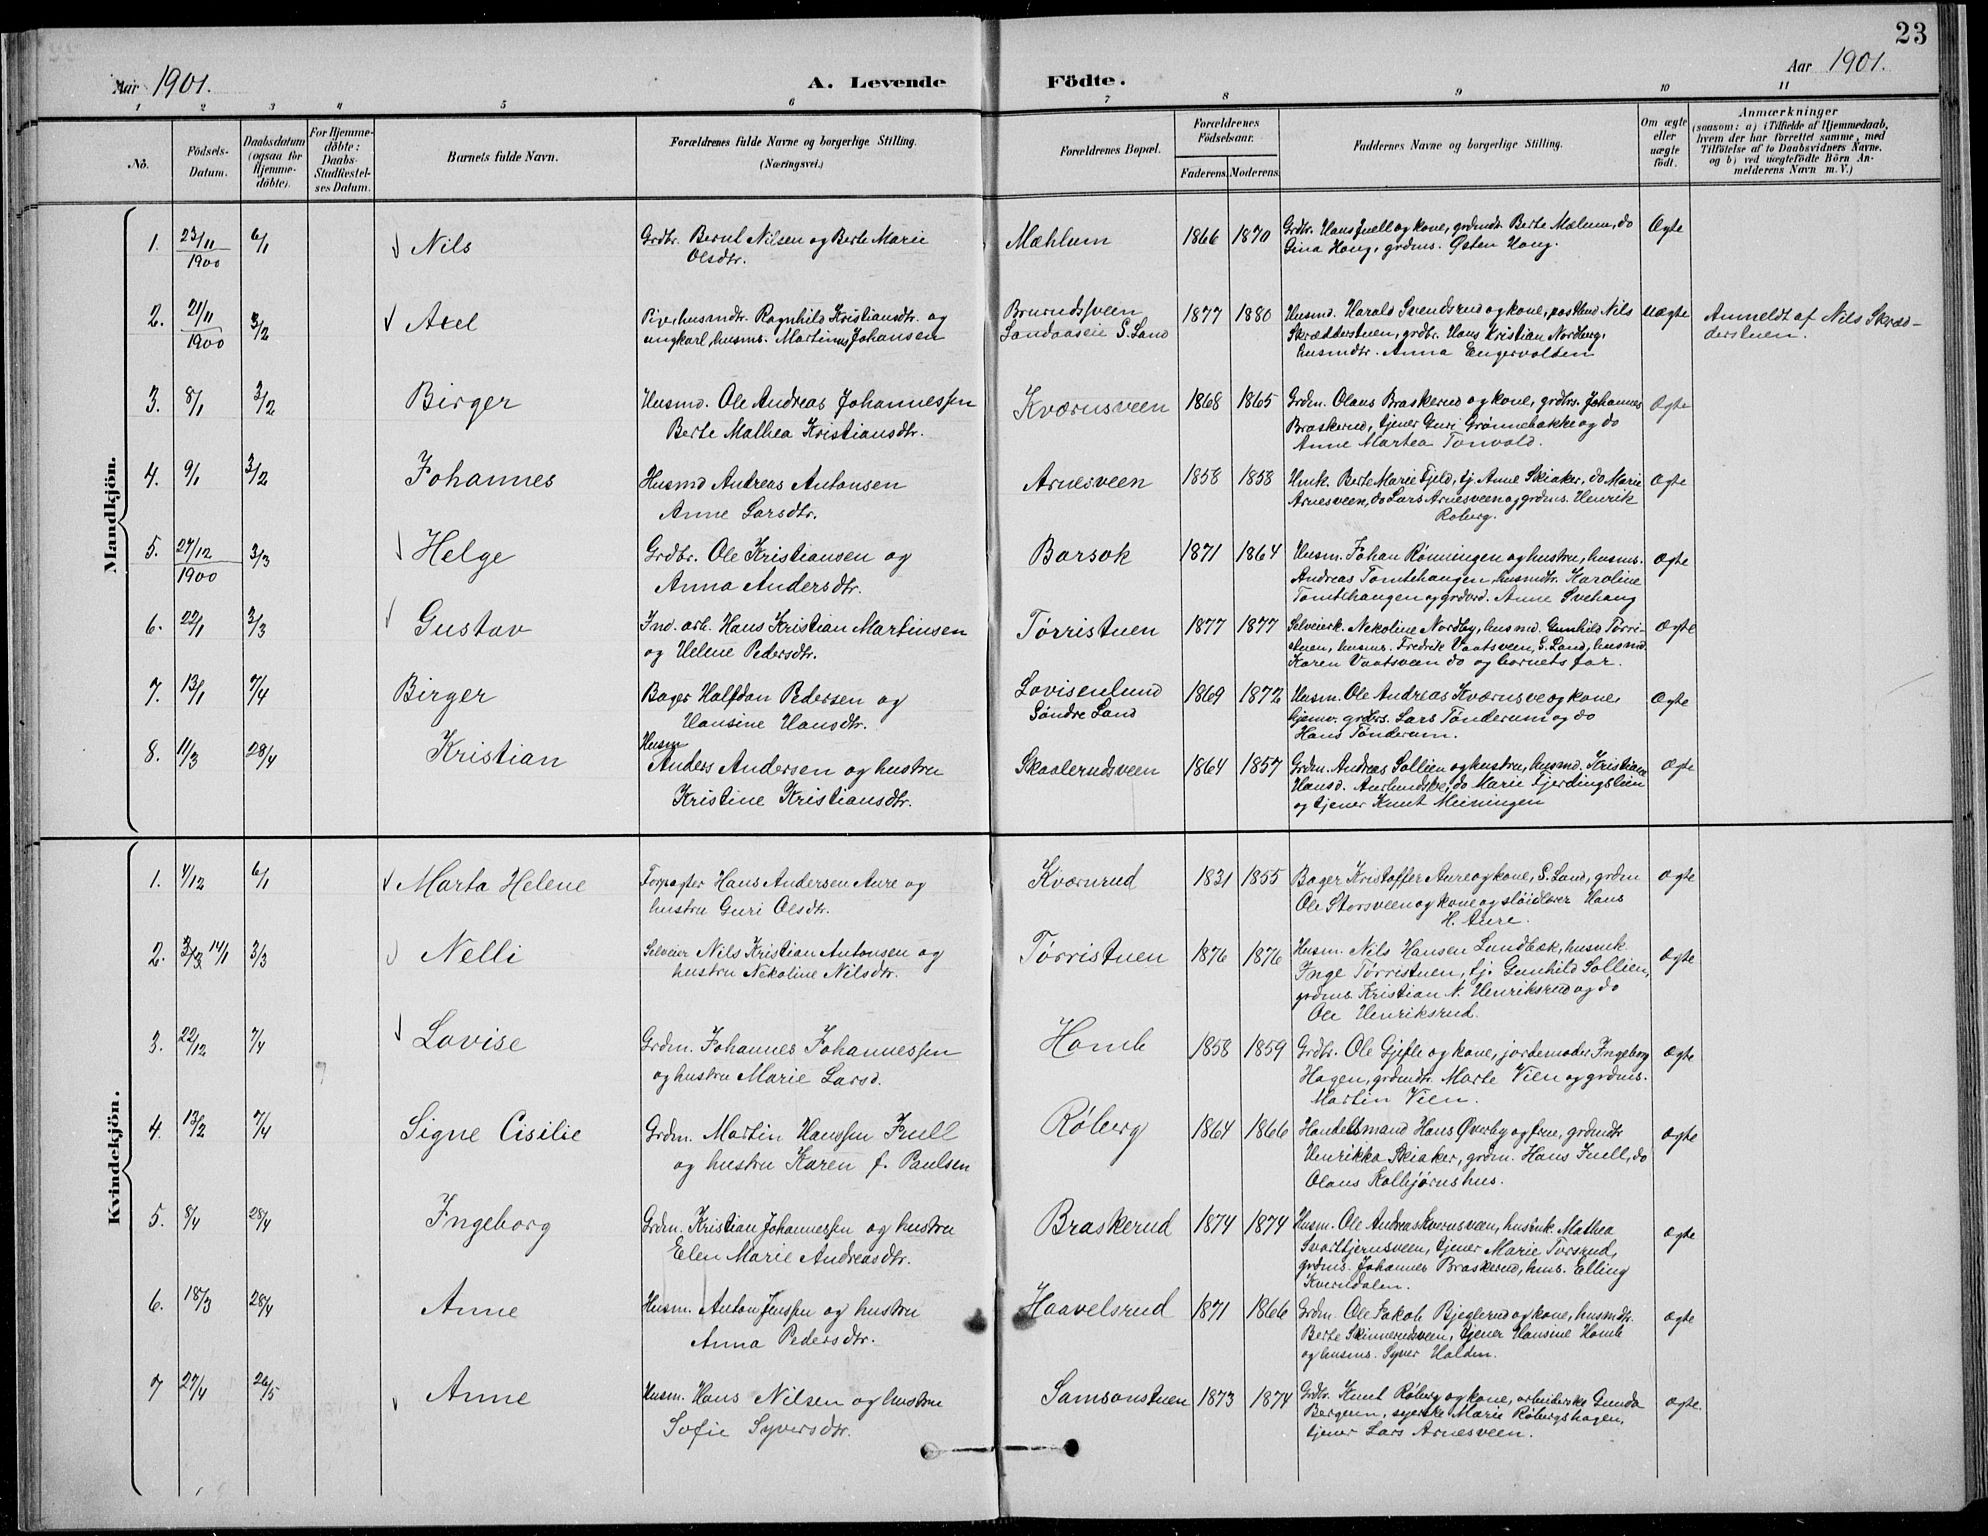 23
Aar 1901.
A. Levende Födte.
Aar 1901.
1 2 3 4 5 6 7 8 9 10 11
No.
Födsels-Datum.
Daabsdatum (ogsaa for Hjemme-döbte).
For Hjemme-döbte: Daabs-Stadfæstel-ses Datum.
Barnets fulde Navn.
Forældrenes fulde Navne og borgerlige Stilling. (Næringsvei.)
Forældrenes Bopæl.
Forældrenes Födselsaar.
Faderens. Moderens.
Faddernes Navne og borgerlige Stilling.
Om ægte eller uægte födt.
Anmærkninger
(saasom: a) i Tilfælde af Hjemmedaab, hvem der har forrettet samme, med Tilföielse af to Daabsvidners Navne, og b) ved uægtefödte Börn An-melderens Navn m. V.)
Mandkjön.
1. 23/11 1900 6/1 Nils
Grdbr. Bernt Nilsen og Berte Marie
Olsdtr.
Mæhlum 1866 1870
Grdbr. Hans Juell og kone, grdmdr. Berte Mælum, do
Gina Haug, grdms. Østen Haug.
Ægte
2. 21/11 1900 3/2 Axel
Pive, husmdtr. Ragnhild Kristiansdtr. og
ungkarl, husms. Martinus Johansen
Bruundsveen
Landaasen S. Land
1877 1880
Husmd. Harald Svendsrud og kone, postbud Nils
Skrædderstuen, grdbr. Hans Kristian Nordberg,
husmdtr. Anna Engervolden
Uægte
Anmeldt af Nils Skræd-
derstuen.
3. 8/1 3/2 Birger
Husmd. Ole Andreas Johannessen
Berte Mathea Kristiansdtr.
Kværnsveen 1868 1865
Grdm. Olaus Braskerud og kone, grdbrs. Johannes
Braskerud, tjener Guri Grønnebakke og do
Anne Martea Tonvold.
Ægte
4. 9/1 3/2 Johannes
Husmd Andreas Antonsen
Anne Larsdtr.
Arnesveen 1858 1858
Hmk. Berte Marie Fjeld, tj. Anne Skiaker, do Marie
Arnesveen, do Lars Arnesveen og grdms. Henrik
Roberg.
Ægte
5. 27/12 1900 3/3 Helge
Grdbr. Ole Kristiansen og
Anna Andersdtr.
Barsok 1871 1864
Husm. Johan Rønningen og hustru, husms.
Andreas Tomtehaugen, husmdtr. Karoline
Tomtehaugen og grdbrd. Anne Svehaug
Ægte
6. 22/1 3/3 Gustav
Ind. arb. Hans Kristian Martinsen
og Helene Pedersdtr.
Tørristuen 1877 1877
Selveierk. Nekoline Nordby, husmd. Gunhild Tørri-
stuen, husms. Fredrik Vaatsveen, S. Land, husmd.
Karen Vaatsveen do og barnets far.
Ægte
7. 13/1 7/4 Birger
Bager Halfdan Pedersen og
Hansine Hansdtr.
Lovisenlund
Søndre Land
1869 1872
Husm. Ole Andreas Kværnsve og kone,
grdbrs. Lars Tønderum og do
Hans Tønderum.
Ægte
8. 11/3 28/4 Kristian
Husm
Anders Andersen og hustru
Kristine Kristiansdtr.
Skaalerudsveen 1864 1857
Grdm. Andreas Sollien og hustru, husmd. Kristiane
Hansd. Aurlundske, do Marie Fjerdingslien
og tjener Knut Meiningen
Ægte
Kvindekjön.
1. 4/12 6/1 Marta Helene
Forpagter Hans Andersen Aure og
hustru Guri Olsdtr.
Kværnrud 1831 1855
Bager Kristoffer Aure og kone, S. Land, grdm
Ole Storsveen og kone og sløidlærer Hans
H. Aure.
Ægte
2. 14/1 3/3 Nelli
Selveier Nils Kristian Antonsen og
hustru Nekoline Nilsdtr.
Tørristuen 1876 1876
Husm. Nils Hansen Lundbæk, husmk.
Inge Tørristuen, tj. Gunhild Sollien,
grdms. Kristian N. Henriksrud og do
Ole Henriksrud.
Ægte
3. 22/12 7/4 Lovise
Grdm. Johannes Johannessen
og hustru Marie Larsd.
Homb 1858 1859
Grdbr. Ole Gjefle og kone, jordemoder Ingeborg
Hagen, grdmdtr. Marte Vien og grdms.
Martin Vien.
Ægte
4. 13/2 7/4 Signe Cisilie
Grdm. Martin Hanssen Juell
og hustru Karen f. Paulsen
Røberg 1864 1866
Handelsmand Hans Øverby og frue, grdmdtr
Henrikka Skiaker, grdm. Hans Juell, do
Olaus Kolbjørnshus.
Ægte
5. 8/4 28/4 Ingeborg
Grdm. Kristian Johannessen og hustru
Elen Marie Andreasdtr.
Braskerud 1874 1874
Husm. Ole Andreas Kvernsveen, husmk. Mathea
Svarttjernsveen, tjener Marie Torsrud,
grdms. Johannes Braskerud, hms. Elling
Kverndalen.
Ægte
6. 18/3 28/4 Anne
Husm. Anton Jenssen og hustru
Anna Pedersdtr.
Haavelsrud 1871 1866
Grdm. Ole Jakob Bjeglerud og kone, husmdtr.
Berte Skinnerudsveen, tjener Hansine Homb
og husms. Syver Halden.
Ægte
7 27/4 26/5 Anne
Husm. Hans Nilsen og hustru
Sofie Syversdtr.
Samsonstuen 1873 1874
Grdbr. Knut Røberg og kone, arbeiderske Gunda
Bergum, syerske Marie Røbergshagen,
tjener Lars Arnesveen.
Ægte.